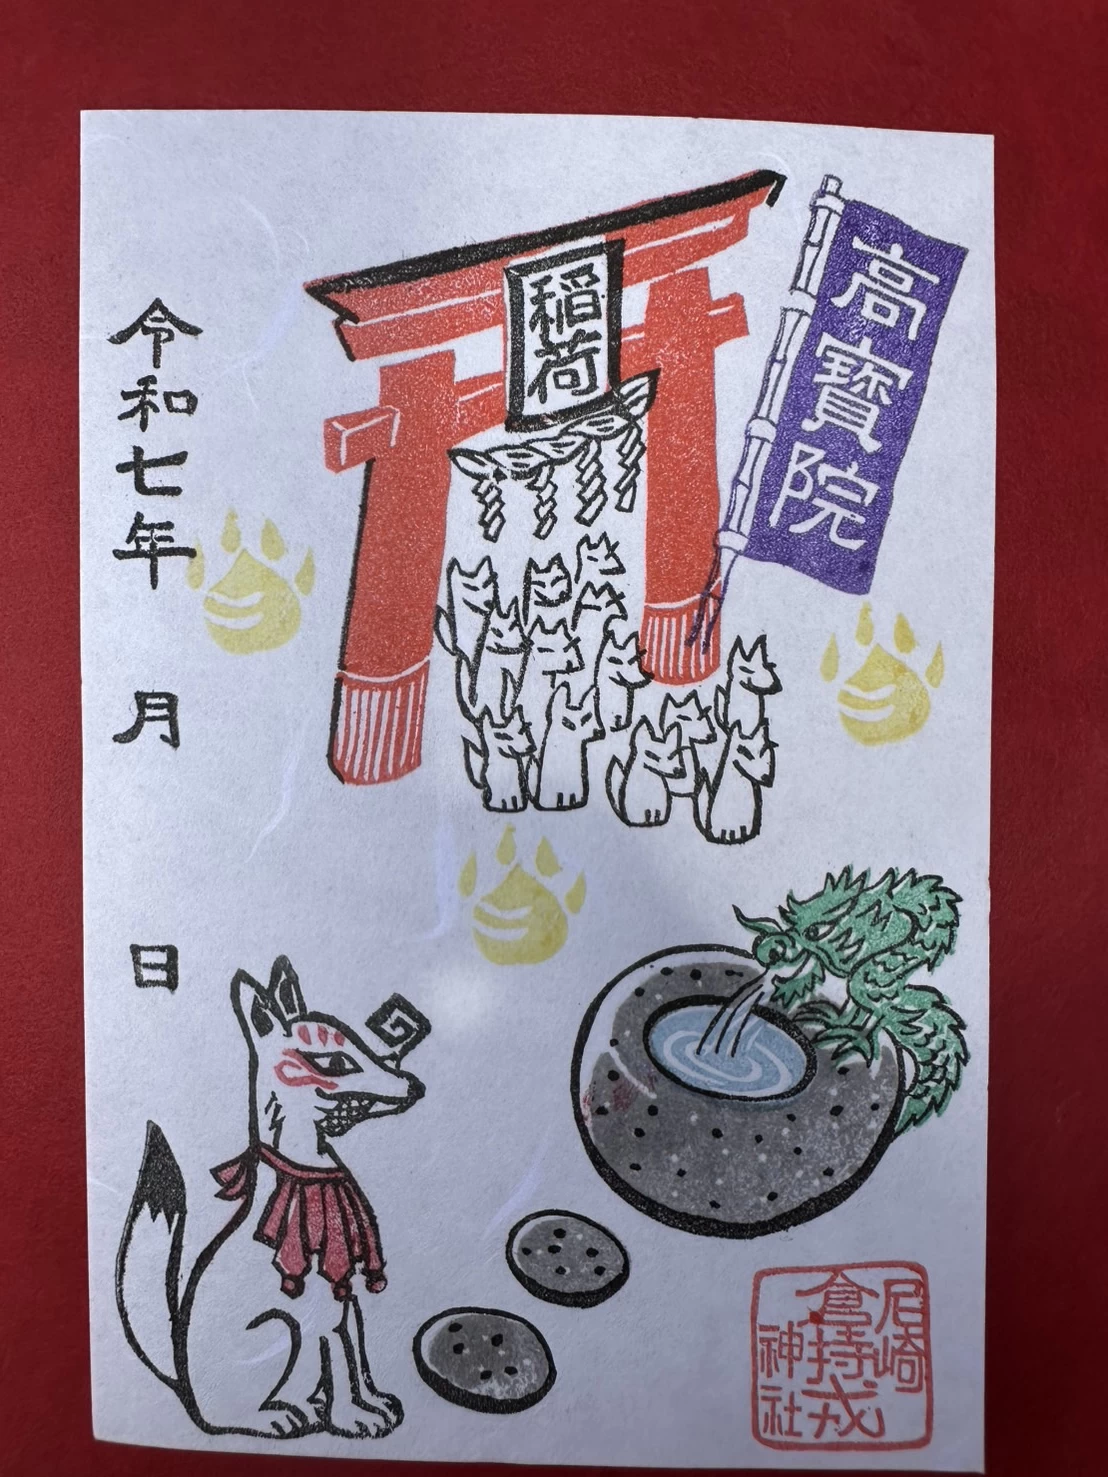 高寶院
稲荷
令和七年 月 日
尼崎
倉持戎
神社